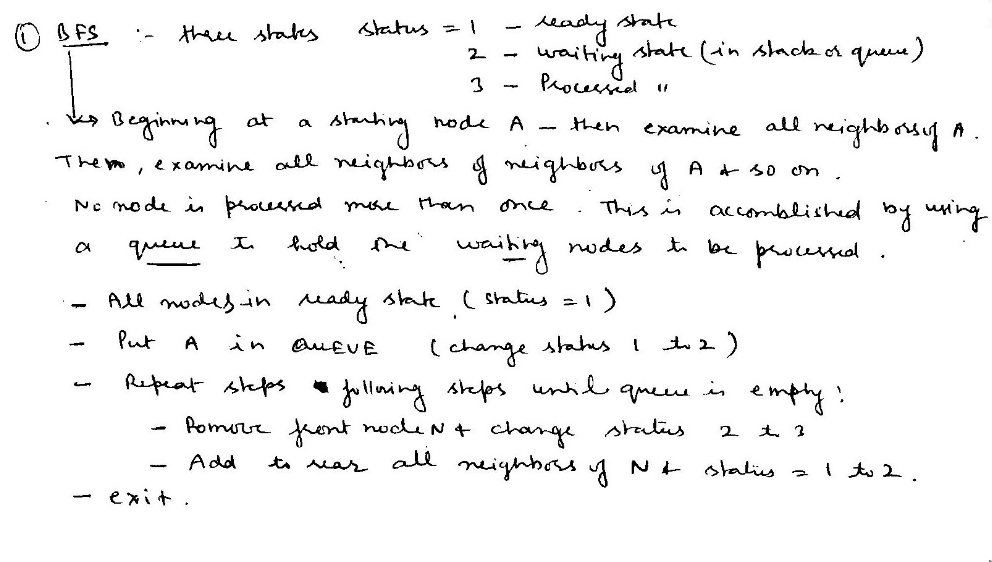 ① BFS :- three states status = 1 - ready state
2 - waiting state (in stack or queue)
3 - Processed "
Beginning at a starting node A - then examine all neighbors of A.
Then, examine all neighbors of neighbors of A & so on.
No node is processed more than once. This is accomblished by using
a queue to hold the waiting nodes to be processed.
- All nodes in ready state (status = 1)
- Put A in QUEUE (change status 1 to 2)
- Repeat steps following steps until queue is empty:
- Remove front node N & change status 2 to 3
- Add to rear all neighbors of N & status = 1 to 2.
- exit.